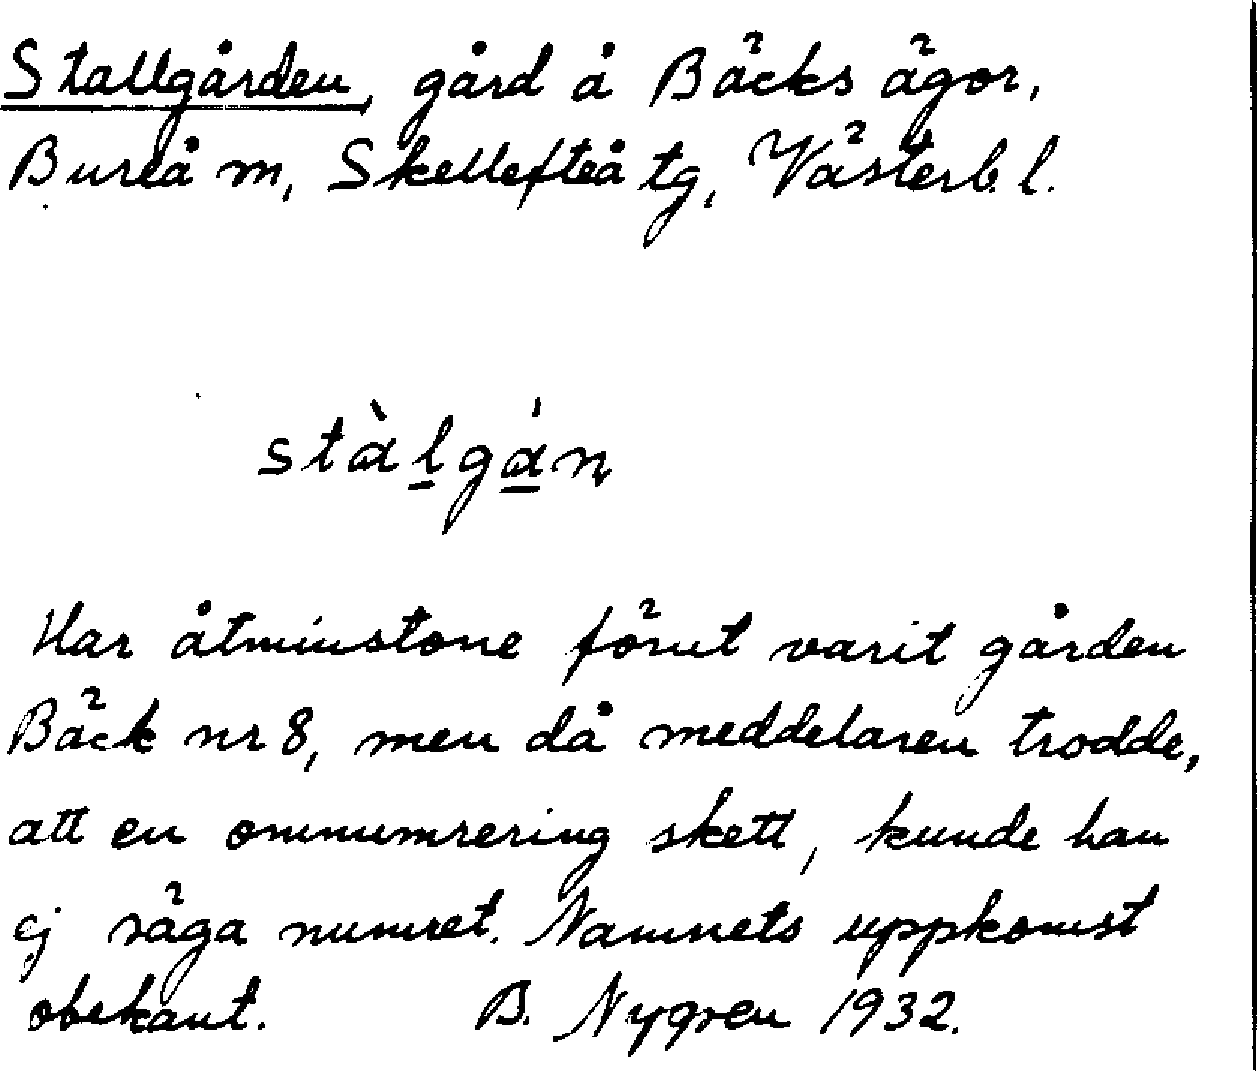 Stallgården, gård å Bäcks ägor,
Bureå m, Skellefteå tg, Västerb. l.
stàl̲gá̲n
Har åtminstone förut varit gården
Bäck nr 8, men då meddelaren trodde,
att en omnumrering skett, kunde han
ej säga numret. Namnets uppkomst
obekant. B. Nygren 1932.